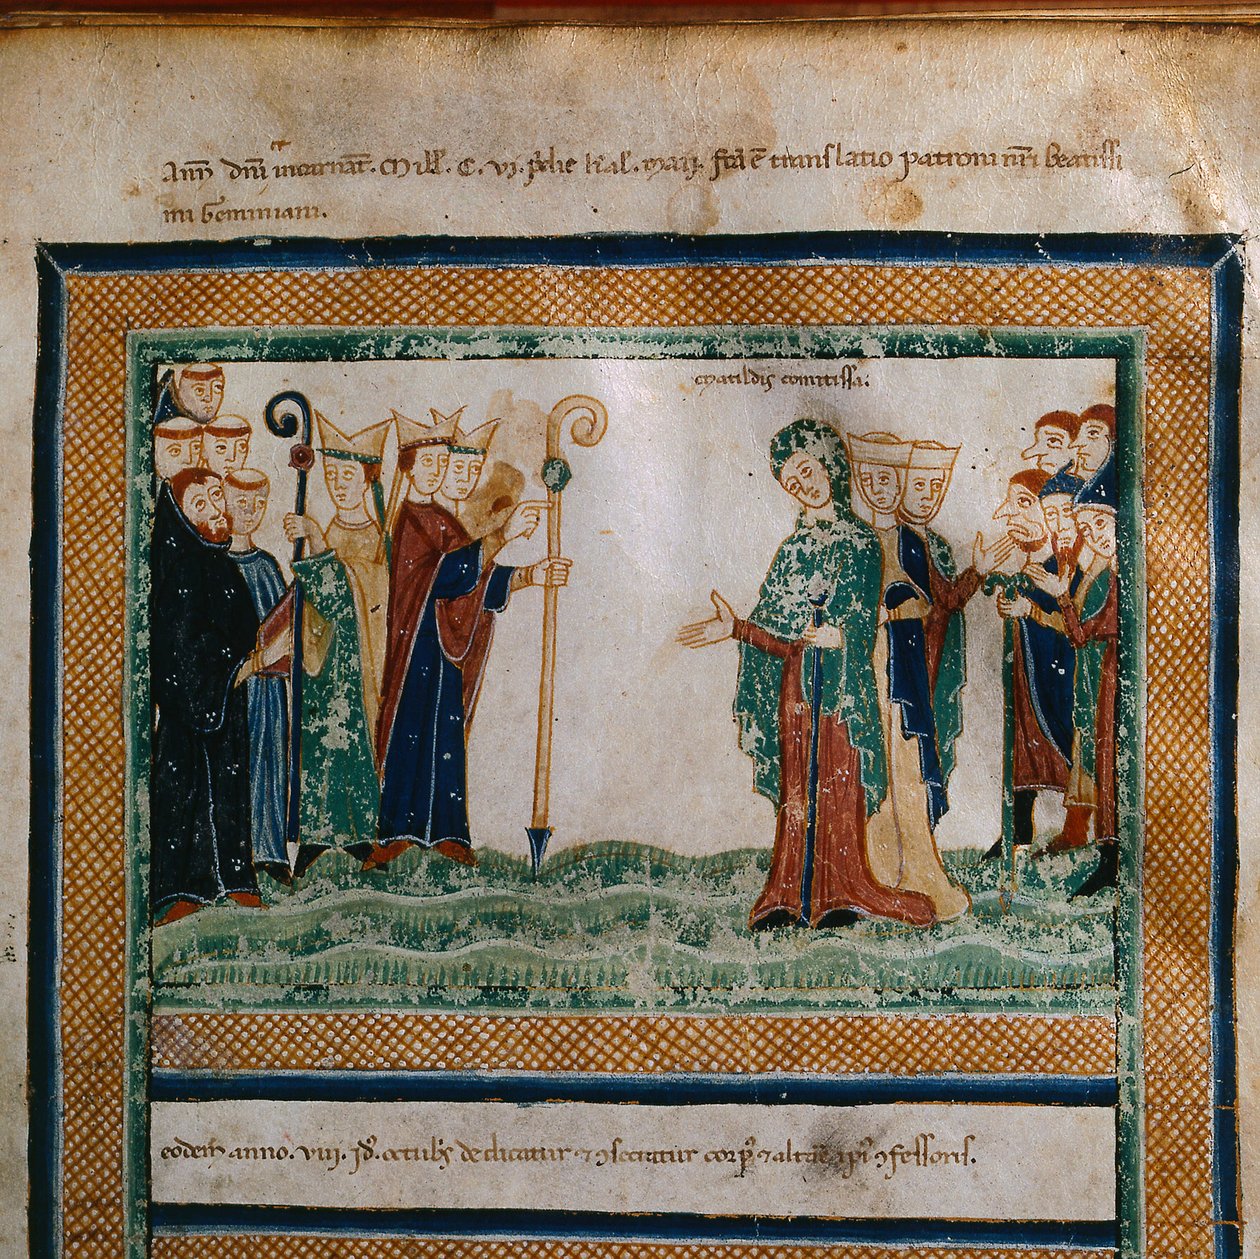 Anñ dñi incarnat̄. Mill̄. C. vj. p̾die kal. Maij. fc̄a ē translatio patroni nr̄i beatissi
mi Geminiani.
Matildis comitissa.
eodem anno. viii. jd'. octubs dedicatur ⁊ ꝯsecratur corp' ⁊ altare ip̄i' ꝯfessoris.